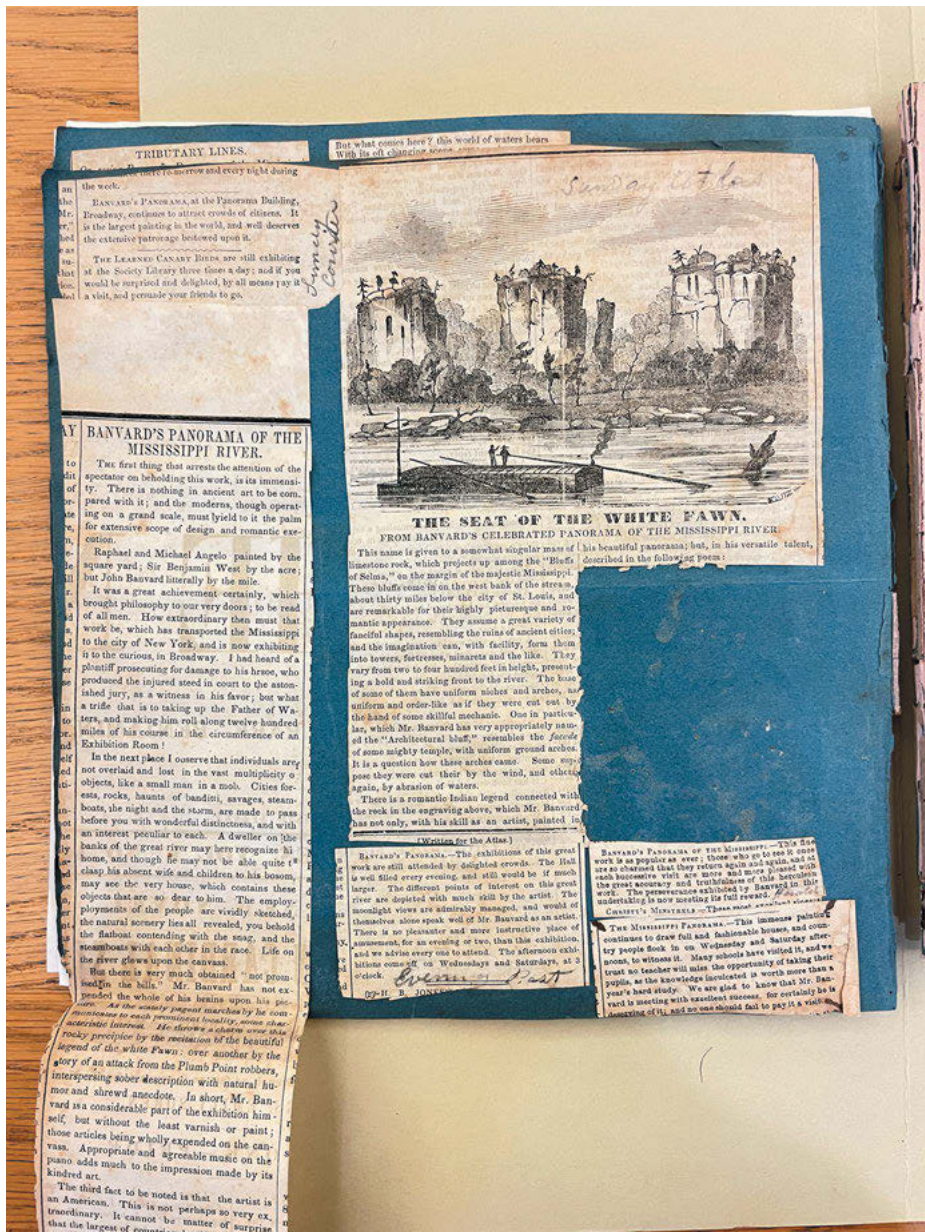 TRIBUTARY LINES.
the week.
BANVARD'S PANORAMA, at the Panorama Building,
Broadway, continues to attract crowds of citizens. It
is the largest painting in the world, and well deserves
the extensive patronage bestowed upon it.
THE LEARNED CANARY BIRDS are still exhibiting
at the Society Library three times a day; and if you
would be surprised and delighted, by all means pay it
a visit, and persuade your friends to go.
BANVARD'S PANORAMA OF THE
MISSISSIPPI RIVER.
THE first thing that arrests the attention of the
spectator on beholding this work, is its immensi-
ty. There is nothing in ancient art to be com-
pared with it; and the moderns, though operat-
ing on a grand scale, must yield to it the palm
for extensive scope of design and romantic exe-
cution.
Raphael and Michael Angelo painted by the
square yard; Sir Benjamin West by the acre;
but John Banvard litterally by the mile.
It was a great achievement certainly, which
brought philosophy to our very doors; to be read
of all men. How extraordinary then must that
work be, which has transported the Mississippi
to the city of New York, and is now exhibiting
is to the curious, in Broadway. I had heard of a
plantiff prosecuting for damage to his hrsoe, who
produced the injured steed in court to the aston-
ished jury, as a witness in his favor; but what
a trifle that is to taking up the Father of Wa-
ters, and making him roll along twelve hundred
miles of his course in the circumference of an
Exhibition Room!
In the next place I ouserve that individuals are
not overlaid and lost in the vast multiplicity o
objects, like a small man in a mob. Cities for-
ests, rocks, haunts of banditti, savages, steam-
boats, the night and the storm, are made to pass
before you with wonderful distinctness, and with
an interest peculiar to each. A dweller on the
banks of the great river may here recognize hi
home, and though he may not be able quite t
clasp his absent wife and children to his bosom,
may see the very house, which contains these
objects that are so dear to him. The employ-
ployments of the people are vividly sketched,
the natural scenery lies all revealed, you behold
the flatboat contending with the snag, and the
steamboats with each other in the race. Life on
the river glows upon the canvass.
But there is very much obtained "not prom-
ised in the bills." Mr. Banvard has not ex-
pended the whole of his brains upon his pic-
ture. As the stately pageant marches by he com-
municates to each prominent locality, some char-
acteristic interest. He throws a charm over this
rocky precipice by the recitation of the beautiful
legend of the white Fawn: over another by the
story of an attack from the Plumb Point robbers,
interspersing sober description with natural hu-
mor and shrewd anecdote. In short, Mr. Ban-
vard is a considerable part of the exhibition him-
self, but without the least varnish or paint;
those articles being wholly expended on the can-
vass. Appropriate and agreeable music on the
piano adds much to the impression made by its
kindred art.
The third fact to be noted is that the artist is
an American. This is not perhaps so very ex-
traordinary. It cannot be matter of surprise
that the largest of
But what comes here? this world of waters bears
With its oft changing
Courier
Sunday Atlas
THE SEAT OF THE WHITE FAWN.
FROM BANVARD'S CELEBRATED PANORAMA OF THE MISSISSIPPI RIVER
This name is given to a somewhat singular mass of
limestone rock, which projects up among the "Bluffs
of Selma," on the margin of the majestic Mississippi.
These bluffs come in on the west bank of the stream,
about thirty miles below the city of St. Louis, and
are remarkable for their highly picturesque and ro-
mantic appearance. They assume a great variety of
fanciful shapes, resembling the ruins of ancient cities;
and the imagination can, with facility, form them
into towers, fortresses, minarets and the like. They
vary from two to four hundred feet in height, present-
ing a bold and striking front to the river. The base
of some of them have uniform niches and arches, as
uniform and order-like as if they were cut out by
the hand of some skillful mechanic. One in particu-
lar, which Mr. Banvard has very appropriately nam-
ed the "Architectural bluff," resembles the facade
of some mighty temple, with uniform ground arches.
It is a question how these arches came. Some sup-
pose they were cut their by the wind, and others
again, by abrasion of waters.
There is a romantic Indian legend connected with
the rock in the engraving above, which Mr. Banvard
has not only, with his skill as an artist, painted in
his beautiful panorama; but, in his versatile talent,
described in the following poem:
[Written for the Atlas.]
BANVARD'S PANORAMA.—The exhibitions of this great
work are still attended by delighted crowds. The Hall
is well filled every evening, and still would be if much
larger. The different points of interest on this great
river are depicted with much skill by the artist. The
moonlight views are admirably managed, and would of
themselves alone speak well of Mr. Banvard as an artist.
There is no pleasanter and more instructive place of
amusement, for an evening or two, than this exhibition,
and we advise every one to attend. The afternoon exhi-
bitions come off on Wednesdays and Saturdays, at 3
o'clock. Evening Post
BANVARD'S PANORAMA OF THE MISSISSIPPI—This fine
work is as popular as ever; those who go to see it once
are so charmed that they return again and again, and at
each successive visit are more and more pleased with
the great accuracy and truthfulness of this herculean
work. The perseverance exhibited by Banvard in this
undertaking is now meeting its full reward.
CHRISTY'S MINSTRELS
THE MISSISSIPPI PANORAMA.—This immense painting
continues to draw full and fashionable houses, and coun-
try people flock in on Wednesday and Saturday after-
noons, to witness it. Many schools have visited it, and we
trust no teacher will miss the opportunity of taking their
pupils, as the knowledge inculcated is worth more than a
year's hard study. We are glad to know that Mr. Ban-
vard is meeting with excellent success, for certainly he is
deserving of it; and no one should fail to pay it a visit.